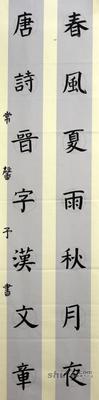 春風夏雨秋月夜
唐詩晉字漢文章
常馨子書